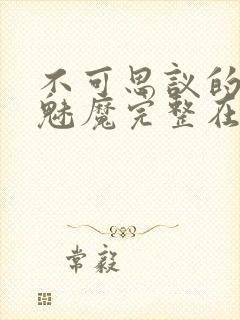 不可思议的
魅魔完整在
常毅